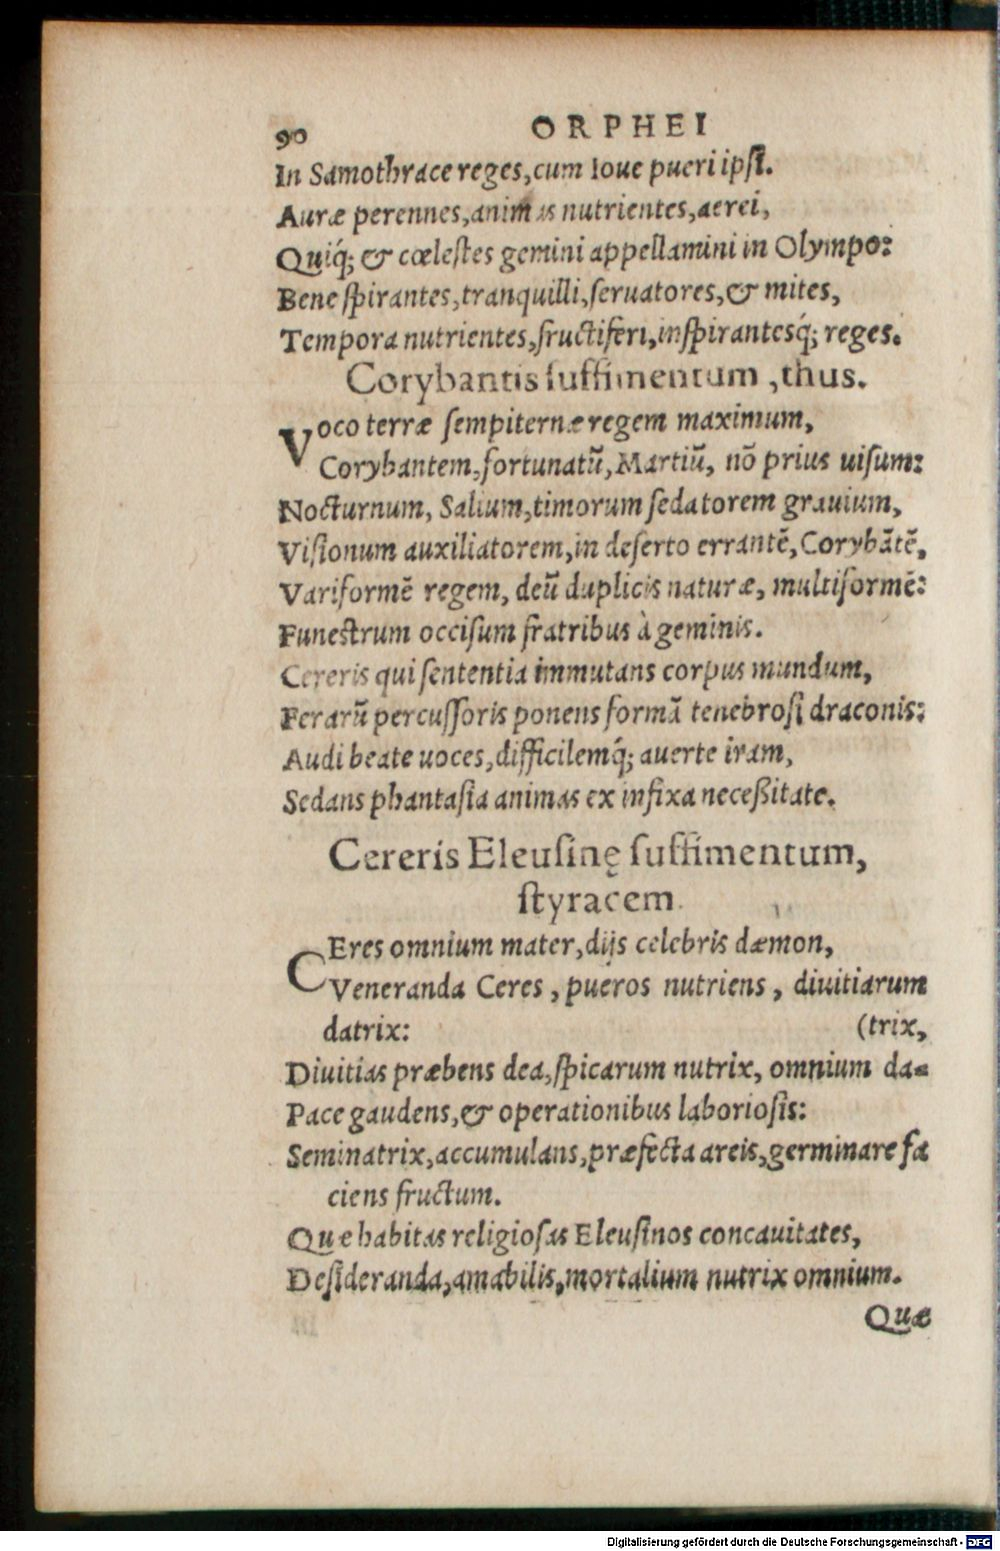 90 ORPHEI
In Samothrace reges, cum Ioue pueri ipſi.
Auræ perennes, animas nutrientes, aerei,
Quiq́; & cœleſtes gemini appellamini in Olympo:
Bene ſpirantes, tranquilli, ſeruatores, & mites,
Tempora nutrientes, fructiferi, inſpirantesq́; reges.
Corybantis ſuffimentum, thus.
Voco terræ ſempiternæ regem maximum,
Corybantem, fortunatũ, Martiũ, nõ prius uiſum:
Nocturnum, Salium, timorum ſedatorem grauium,
Viſionum auxiliatorem, in deſerto errantẽ, Corybãtẽ,
Variformẽ regem, deũ duplicis naturæ, multiformẽ:
Funeſtrum occiſum fratribus à geminis.
Cereris qui ſententia immutans corpus mundum,
Ferarũ percuſſoris ponens formã tenebroſi draconis:
Audi beate uoces, difficilemq́; auerte iram,
Sedans phantaſia animas ex infixa neceßitate.
Cereris Eleuſinę ſuffimentum,
ſtyracem.
CEres omnium mater, dijs celebris dæmon,
Veneranda Ceres, pueros nutriens, diuitiarum
datrix: (trix,
Diuitias præbens dea, ſpicarum nutrix, omnium da-
Pace gaudens, & operationibus laborioſis:
Seminatrix, accumulans, præfecta areis, germinare fa
ciens fructum.
Quæ habitas religioſas Eleuſinos concauitates,
Deſideranda, amabilis, mortalium nutrix omnium.
Quæ
Digitalisierung gefördert durch die Deutsche Forschungsgemeinschaft - DFG